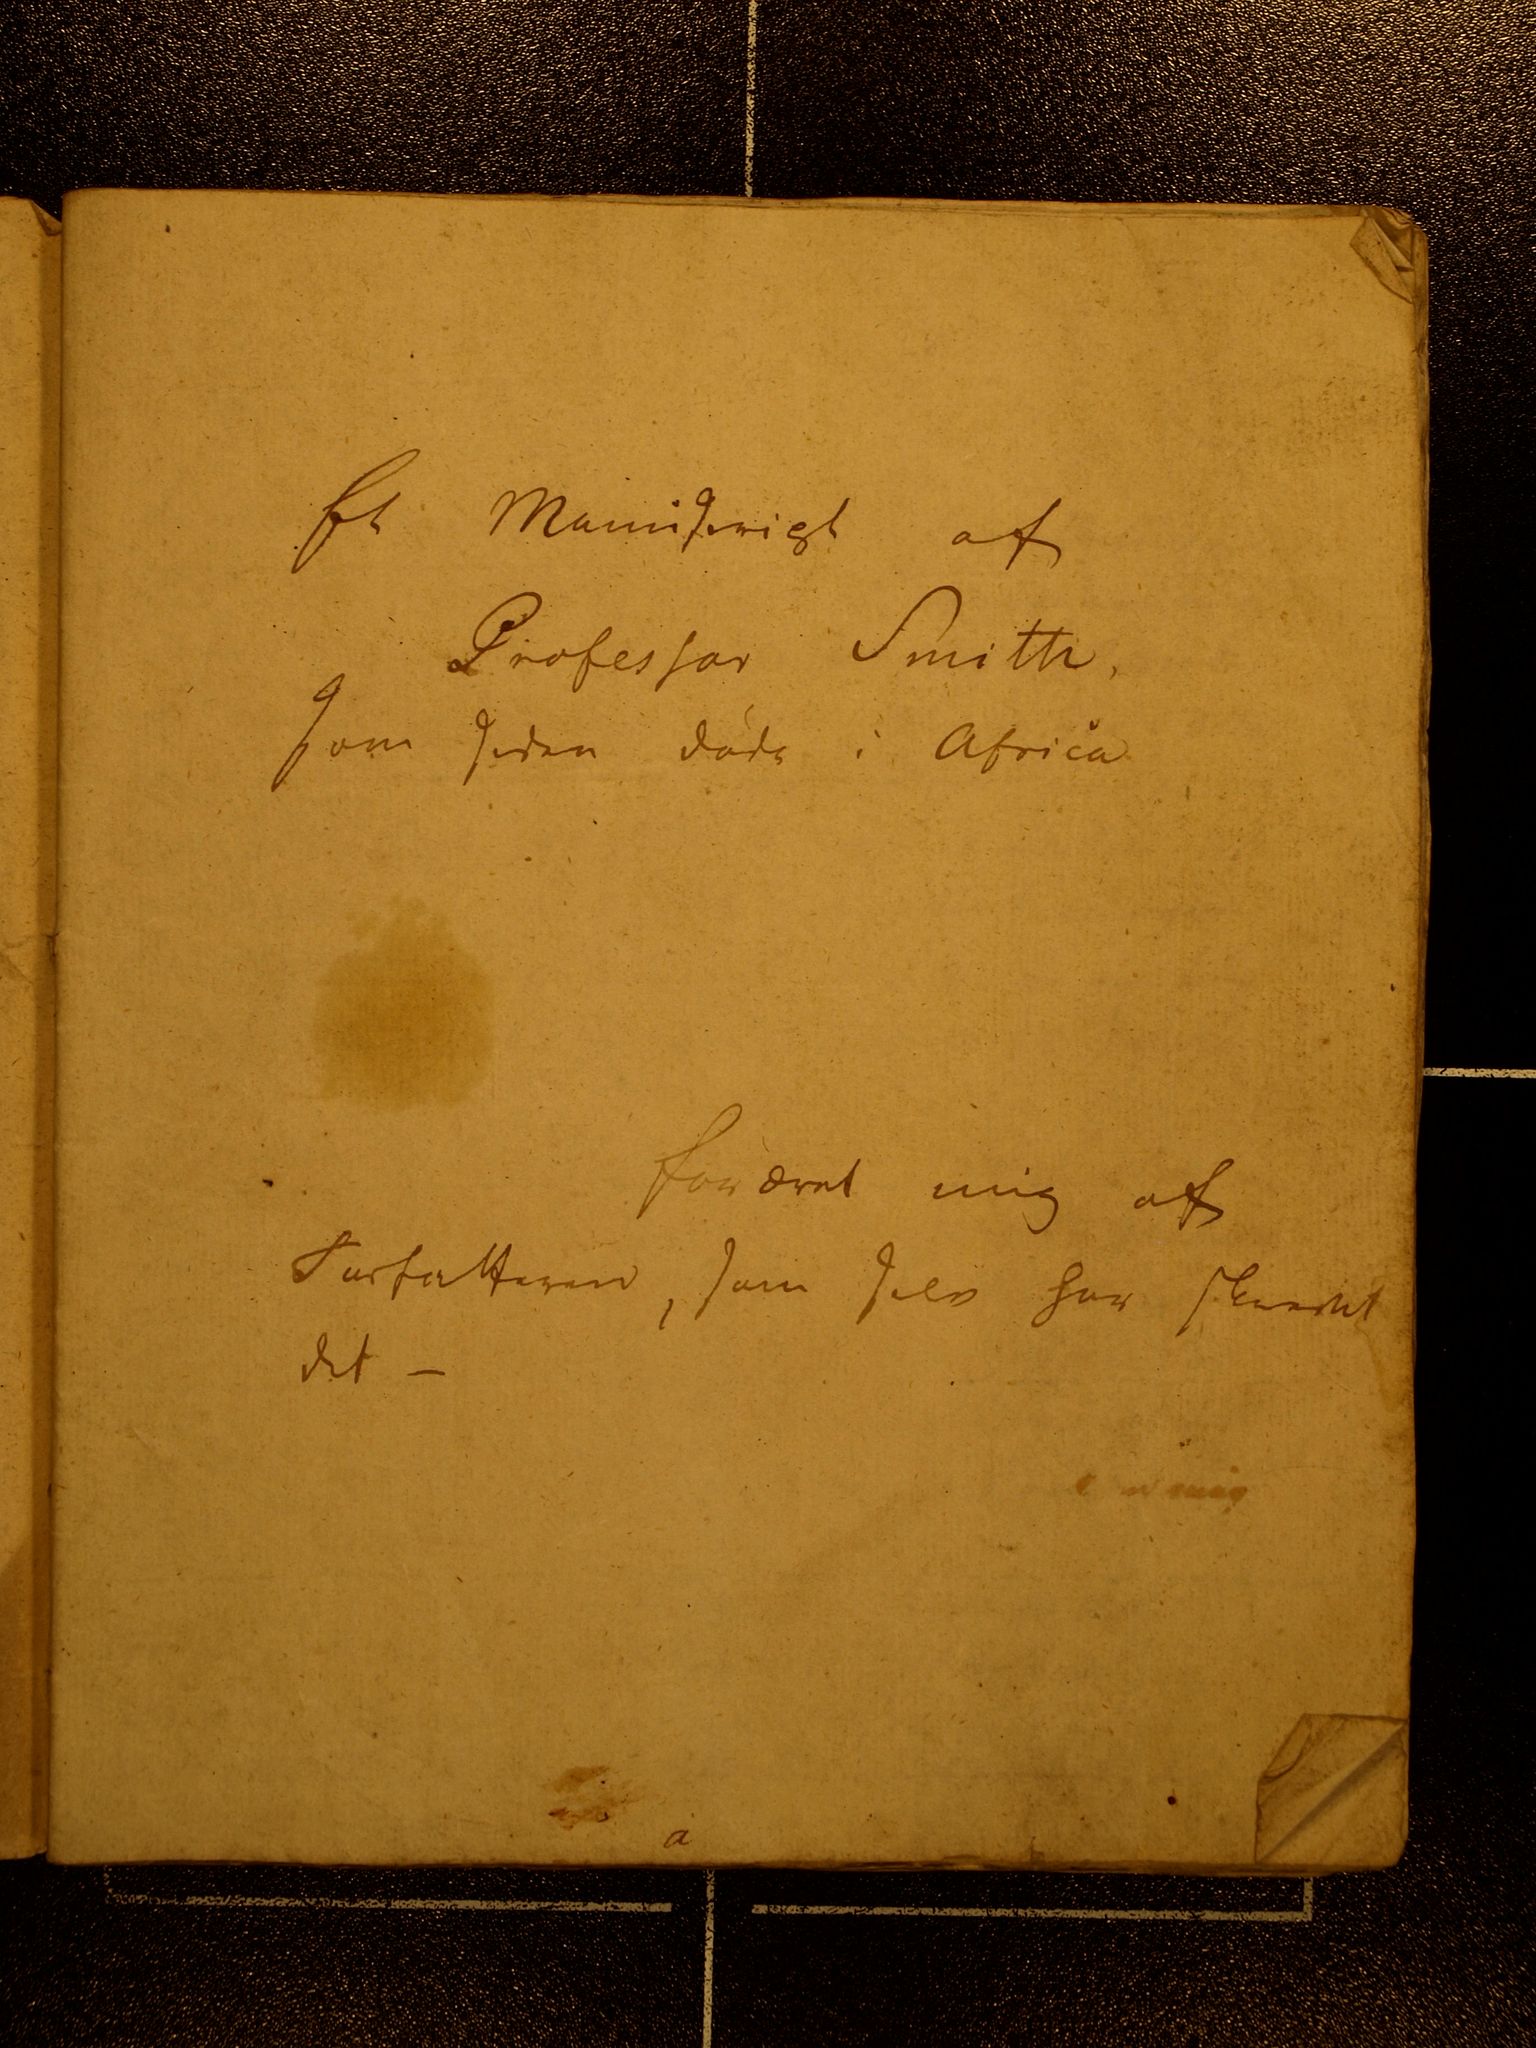 Et Manuscript af
Professor Smith,
som siden döde i Africa
foræret mig af
Forfatteren, som selv har skrevet
det –
mig
a